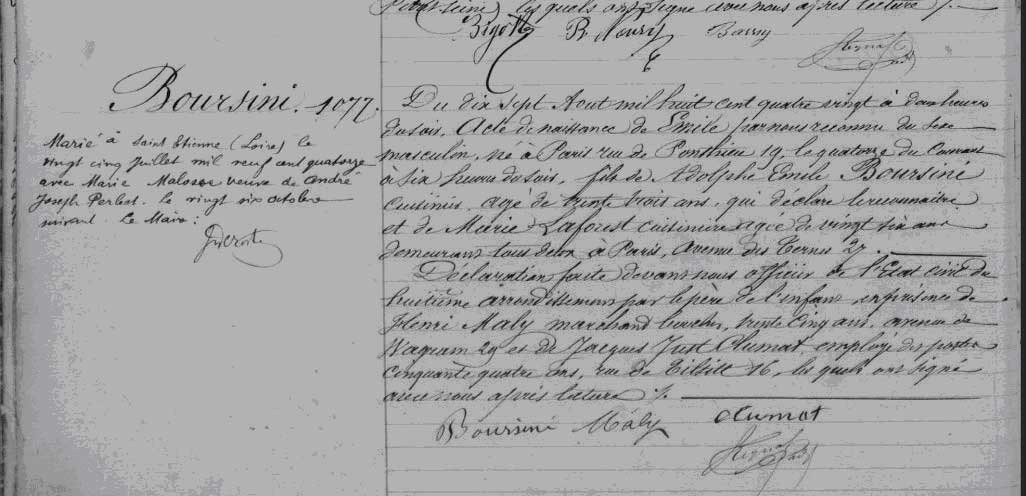 lesquels ont signé avec nous après lecture ./.
Bigot R. Noury Barry
Boursini. 1077.
Marié à Saint Etienne (Loire) le
vingt cinq Juillet mil neuf cent quatorze
avec Marie Malosse veuve de André
Joseph Perbet. le vingt six octobre
suivant. Le Maire.
Du dix sept Aout mil huit cent quatre vingt à deux heures
du soir. Acte de naissance de Emile par nous reconnu du sexe
masculin, né à Paris rue de Ponthieu 19, le quatorze du Courant
à six heures du soir, fils de Adolphe Emile Boursini
Cuisinier, agé de trente trois ans, qui déclare le reconnaitre
et de Marie Laforest cuisinière agée de vingt six ans
demeurant tous deux à Paris, Avenue des Ternes 27.
Déclaration faite devant nous officier de l'Etat civil du
huitième arrondissement par le père de l'enfant en présence de
Henri Maly marchand boucher, trente cinq ans, avenue de
Wagram 29 et de Jacques Just Clumat, employé des postes
cinquante quatre ans, rue de Tilsitt 16, lesquels ont signé
avec nous après lecture ./.
Boursini Maly Clumat